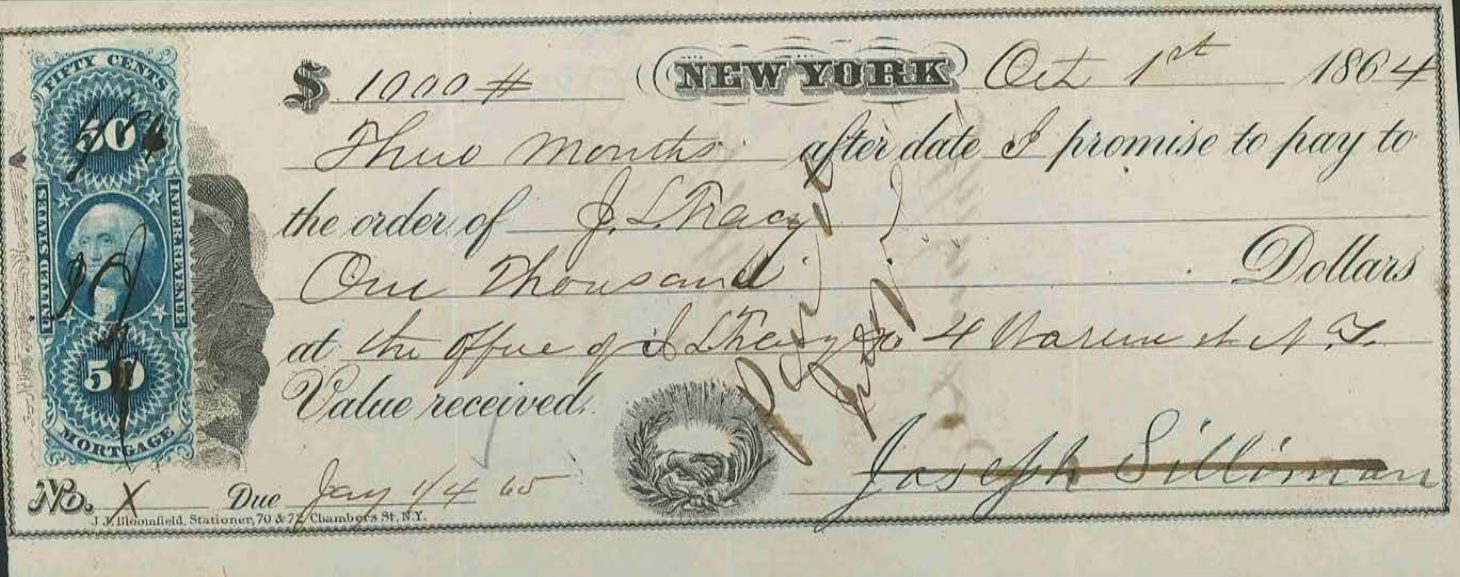 FIFTY CENTS
50
UNITED STATES
INTER. REVENUE
50
MORTGAGE
$ 1000 # NEW YORK Oct 1st 1864
Three Months after date I promise to pay to
the order of J. L. Tracy
One Thousand Dollars
at the office of J L Tracy & Co 4 Warren st N. Y.
Value received.
Joseph Silliman
No. X Due Jany 1/4 65
J. M. Bloomfield, Stationer, 70 & 72 Chambers St. N.Y.